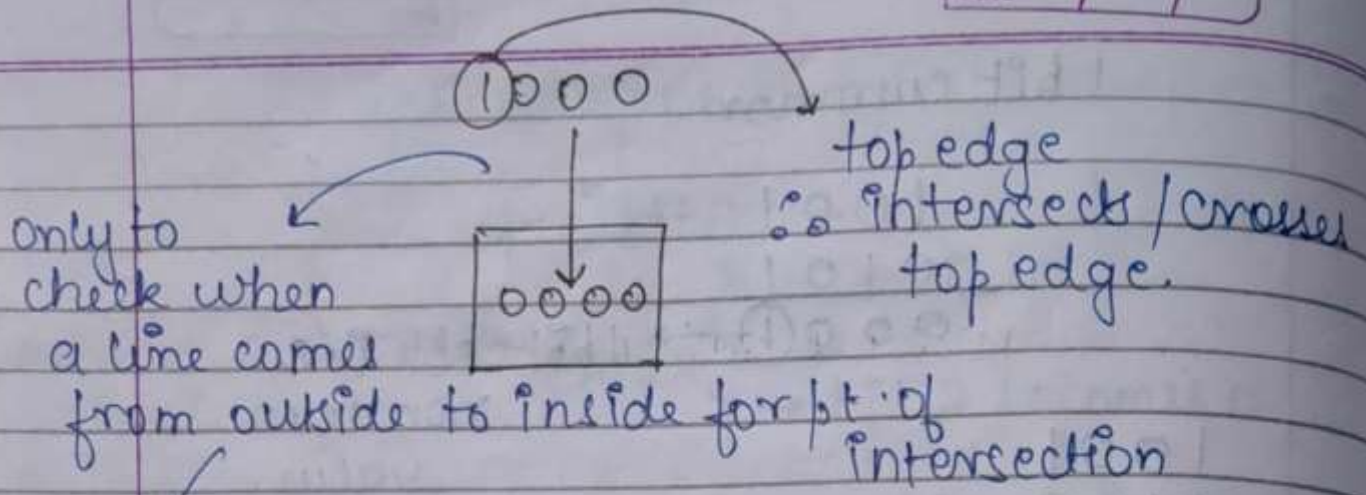 1000
top edge
∴ intersects / crosses
top edge.
only to
check when
a line comes
0000
from outside to inside for pt. of
intersection